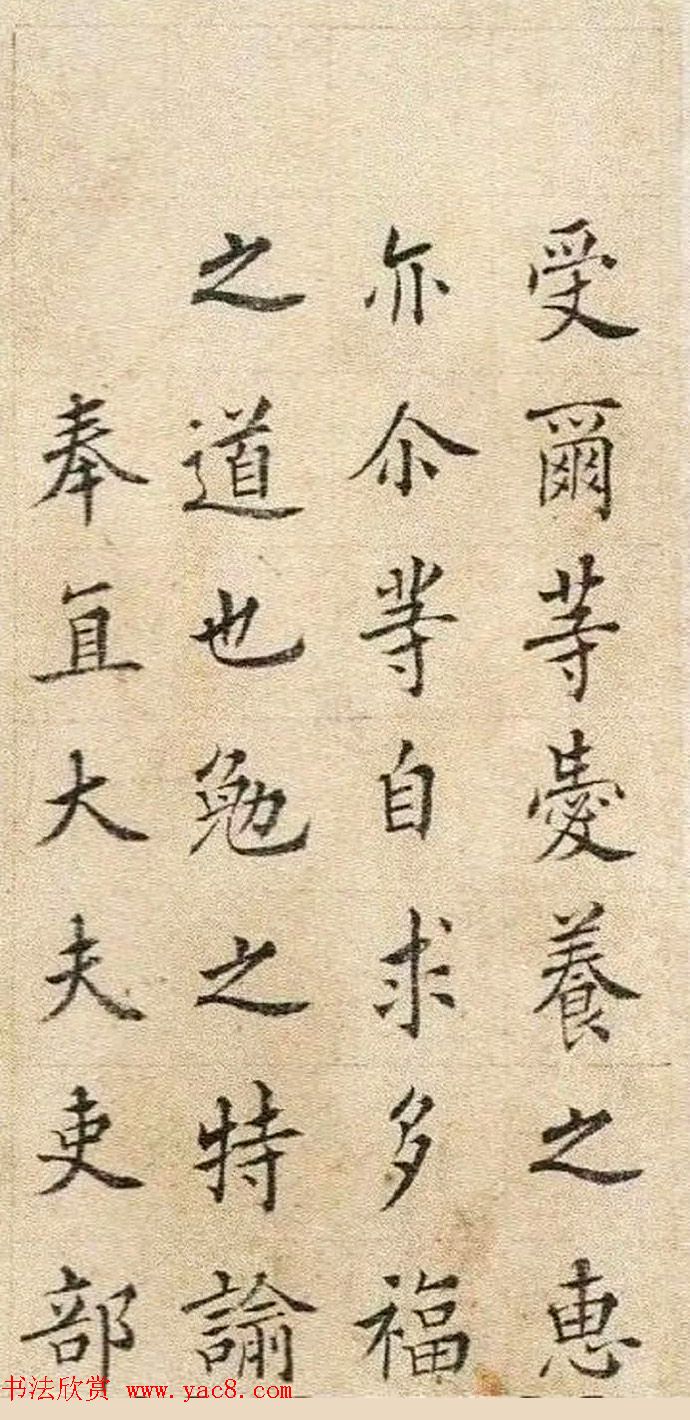 受爾等愛養之惠
亦尒等自求多福
之道也勉之特諭
奉直大夫吏部
书法欣赏 www.yac8.com